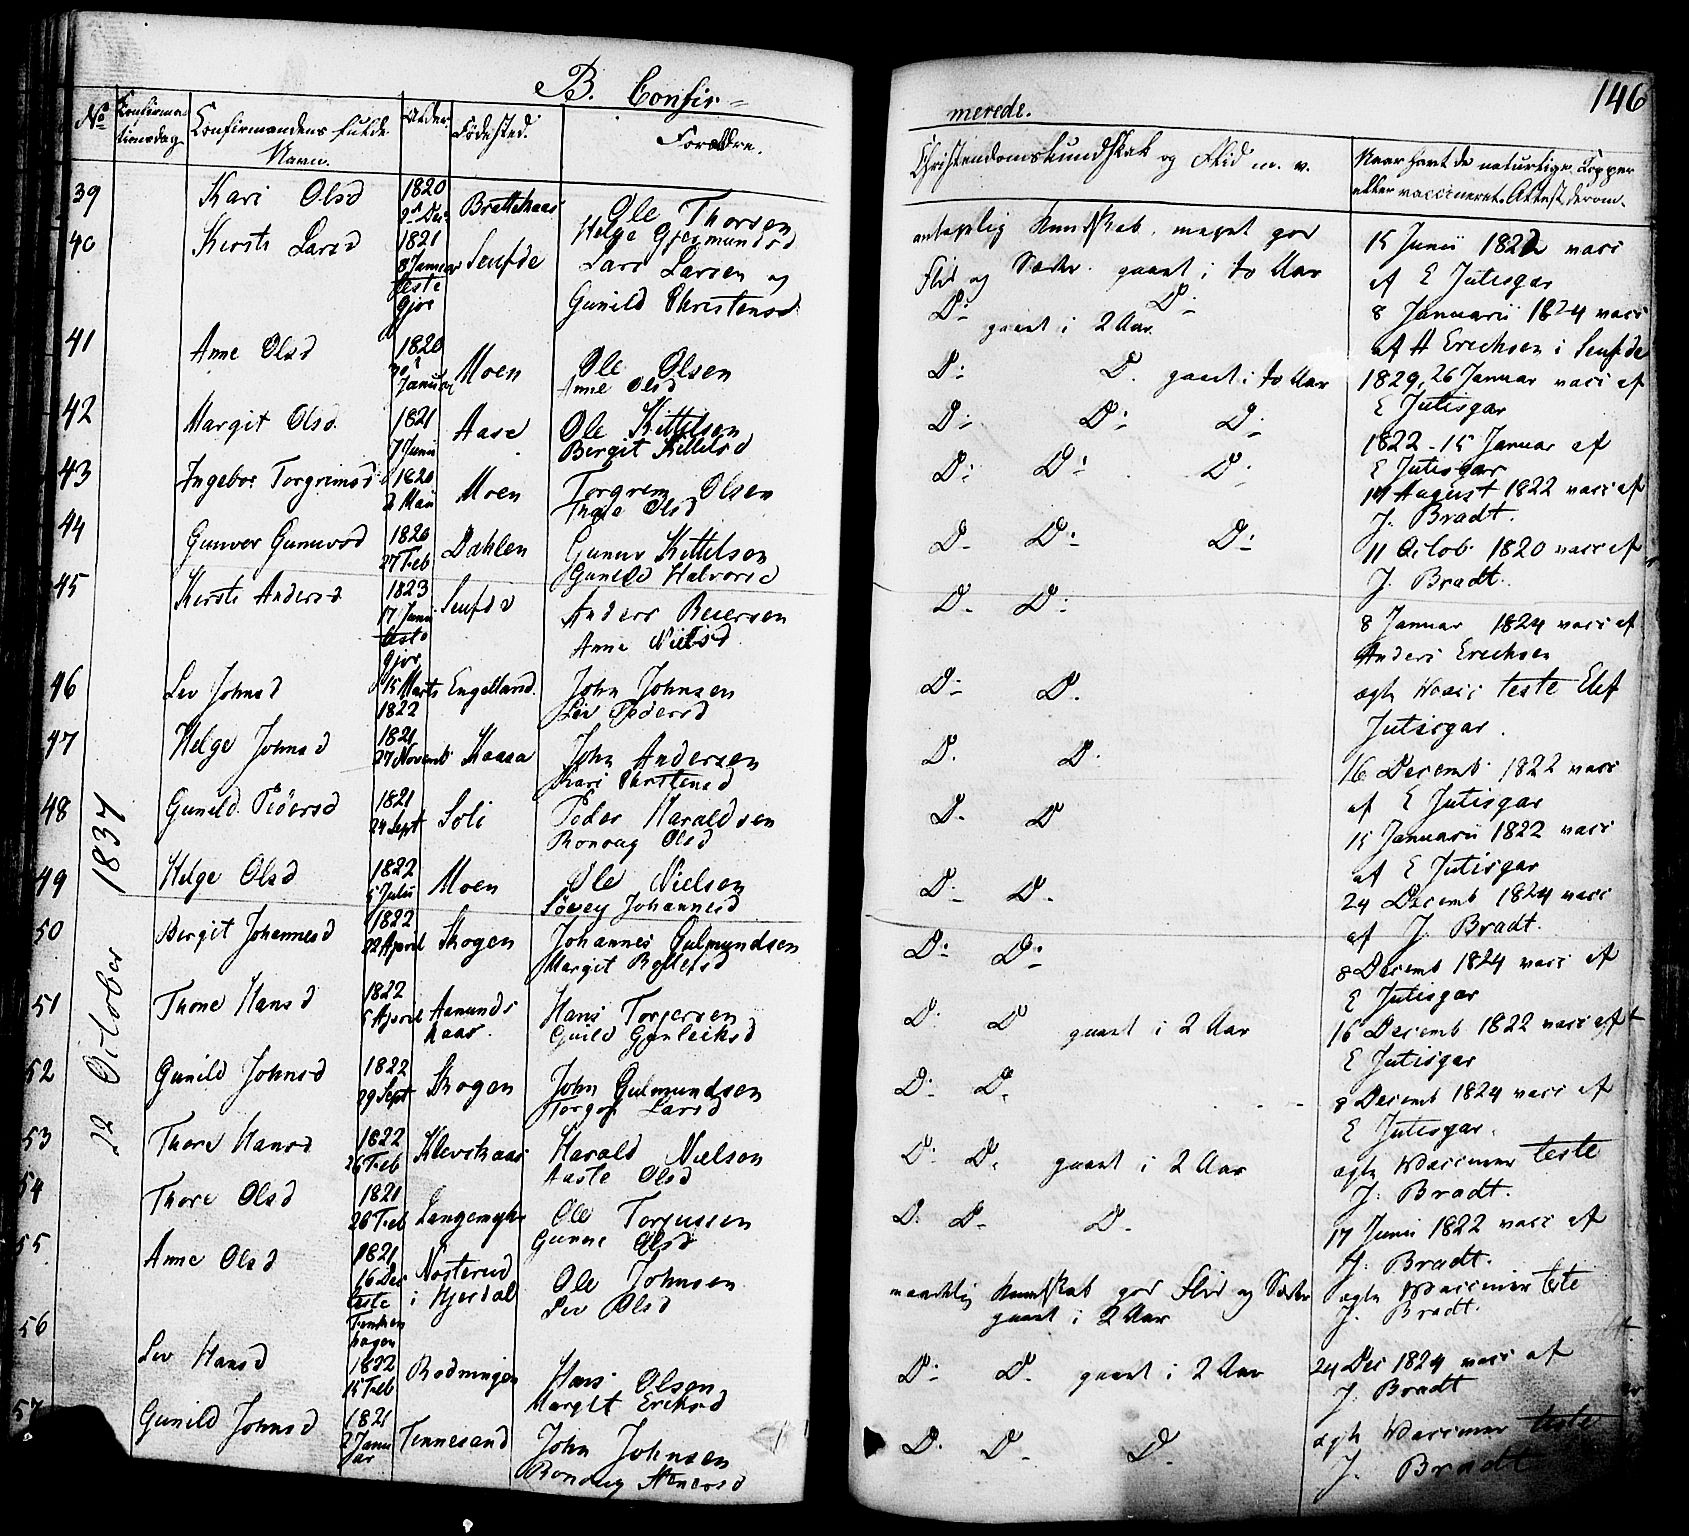 B. Confir-
No
Confirma-
tionsdag
Confirmandens fulde
Navn.
Alder.
Fødested.
Forældre.
39
Kari Olsd
1820
Brattekaas
Ole Thorsen
Helge Gjermundsd
40
Kersti Larsd
1821
8 Januar
teste
Gjør
Seufde
Lars Larsen og
Gunild Christensd
41
Anne Olsd
1820
Januar
Moen
Ole Olsen
Anne Olsd
42
Margit Olsd
1821
7 Junii
Aase
Ole Kittelsen
Bergit Kittelsd
43
Ingebor Torgrimsd
1820
Maii
Moen
Torgrem Olsen
Olsd
44
Gunver Gunnersd
1820
27 Feb
Dahlen
Gunnar Kittelson
Guneld Halvorsd
45
Kersti Andersd
1823
17 Junii
teste
Gjør
Seufde
Anders Reiersen
Anne Nielsd
46
Liv Johnsd
15 Marts
1822
Engelland
John Johnsen
Liv Pedersd
47
Helge Johnsd
1821
27 Novemb
Haasa
John Andersen
Kari
48
Guneld Pedersd
1821
24 Sept
Soli
Peder Haraldsen
Ronoug Olsd
49
Helge Olsd
1822
5 Julii
Moen
Ole Nielsen
Johannesd
50
Bergit Johannesd
1822
22 April
Skogen
Johannes Gulmundsen
Margit
51
Thone Hansd
1822
5 April
Aamunds
kaas
Hans Torgersen
Gunleiksd
52
Gunild Johnsd
1822
29 Sept
Skogen
John Gulmundsen
Torgon Larsd
53
Thore Hansd
1822
26 Feb
Klevekaas
Harald Nielson
Aaste Olsd
54
Thore Olsd
1821
26 Feb
Langemyhr
Ole Torjussen
Gunne Olsd
55
Anne Olsd
1821
16 Dec
teste
Nosterud
i Hjerdal
Ole Johnsen
Liv Olsd
56
Liv Hansd
1822
15 Feb
Rodningen
Hans Olsen
Margit Eriksd
57
Gunild Johnsd
1821
2 Janu
ar
Tennesand
John Johnsen
Ronoug
22 October 1837
146
merede.
Christendomskundskab og Flid m. v.
Naar havt de naturlige Kopper
eller vaccineret. Attest derom.
antagelig Kundskab, meget god
Flid og Sæder. gaaet i to Aar
15 Junii 1822 vacc
af E Jutisgar
D: D:
gaaet i 2 Aar
8 Januarii 1824 vacc
af A Erichsen i Seufde
D: D. gaaet i to Aar
1829, 26 Januar vacc af
E Jutisgar
D: D: D:
1822 - 15 Januar af
E Jutisgar
D: D: D:
August 1822 vacc af
J. Bradt.
D. D: D:
11 Octob 1820 vacc af
J. Bradt.
D. D:
8 Januar 1824 vacc af
Anders Erichsen
D: D.
ægte Vacc teste Elef
Jutisgar.
D. D.
16 Decemb 1822 vacc
af E Jutisgar
D. D
15 Januarii 1822 vacc
af E Jutisgar
D: D.
24 Decemb 1824 vacc
af J. Bradt.
D: D:
8 Decemb 1824 vacc af
E Jutisgar
D: D gaaet i 2 Aar
16 Decemb 1822 vacc af
E Jutisgar
D: D.
8 Decemb 1824 vacc af
E Jutisgar.
D: D. gaaet i 2 Aar
ægte Vacciner teste
J. Bradt.
D: D. D.
17 Junii 1822 vacc af
J. Bradt.
maadelig Kundskab god Flid og Sæder
gaaet i 2 Aar
ægte Vacciner teste
J. Bradt.
D: D. gaaet i 2 Aar
24 Dec 1824 vacc af
J. Bradt
D. D. D.
ægte Vacciner teste
J. Bradt